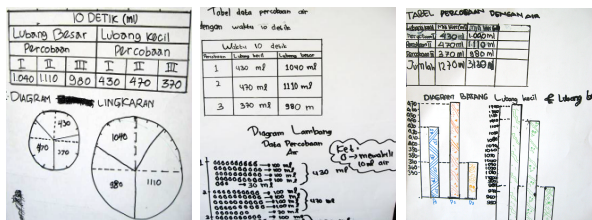 10 DETIK (ml)
Lubang Besar Lubang Kecil
Percobaan Percobaan
I II III I II III
1.040 1.110 980 430 470 370
DIAGRAM LINGKARAN
430
470
370
1040
980
1110
Tabel data percobaan air
dengan waktu 10 detik
Waktu 10 detik
Percobaan Lubang kecil Lubang besar
1 430 ml 1040 ml
2 470 ml 1110 ml
3 370 ml 980 m
Diagram Lambang
Data Percobaan
Air
Ket:
0 → mewakili
10 ml air
1
→ 100 ml
→ 100 ml
→ 100 ml
→ 100 ml
→ 30 ml
430 ml
2
→ 100 ml
→ 100 ml
470 ml
TABEL PERCOBAAN DENGAN AIR
Lubang kecil
Percobaan I 430 ml 1.040 ml
Percobaan II 470 ml 1.110 ml
Percobaan III 370 ml 980 ml
Jumlah 1270 ml 3130 ml
DIAGRAM BATANG Lubang kecil & Lubang b
470